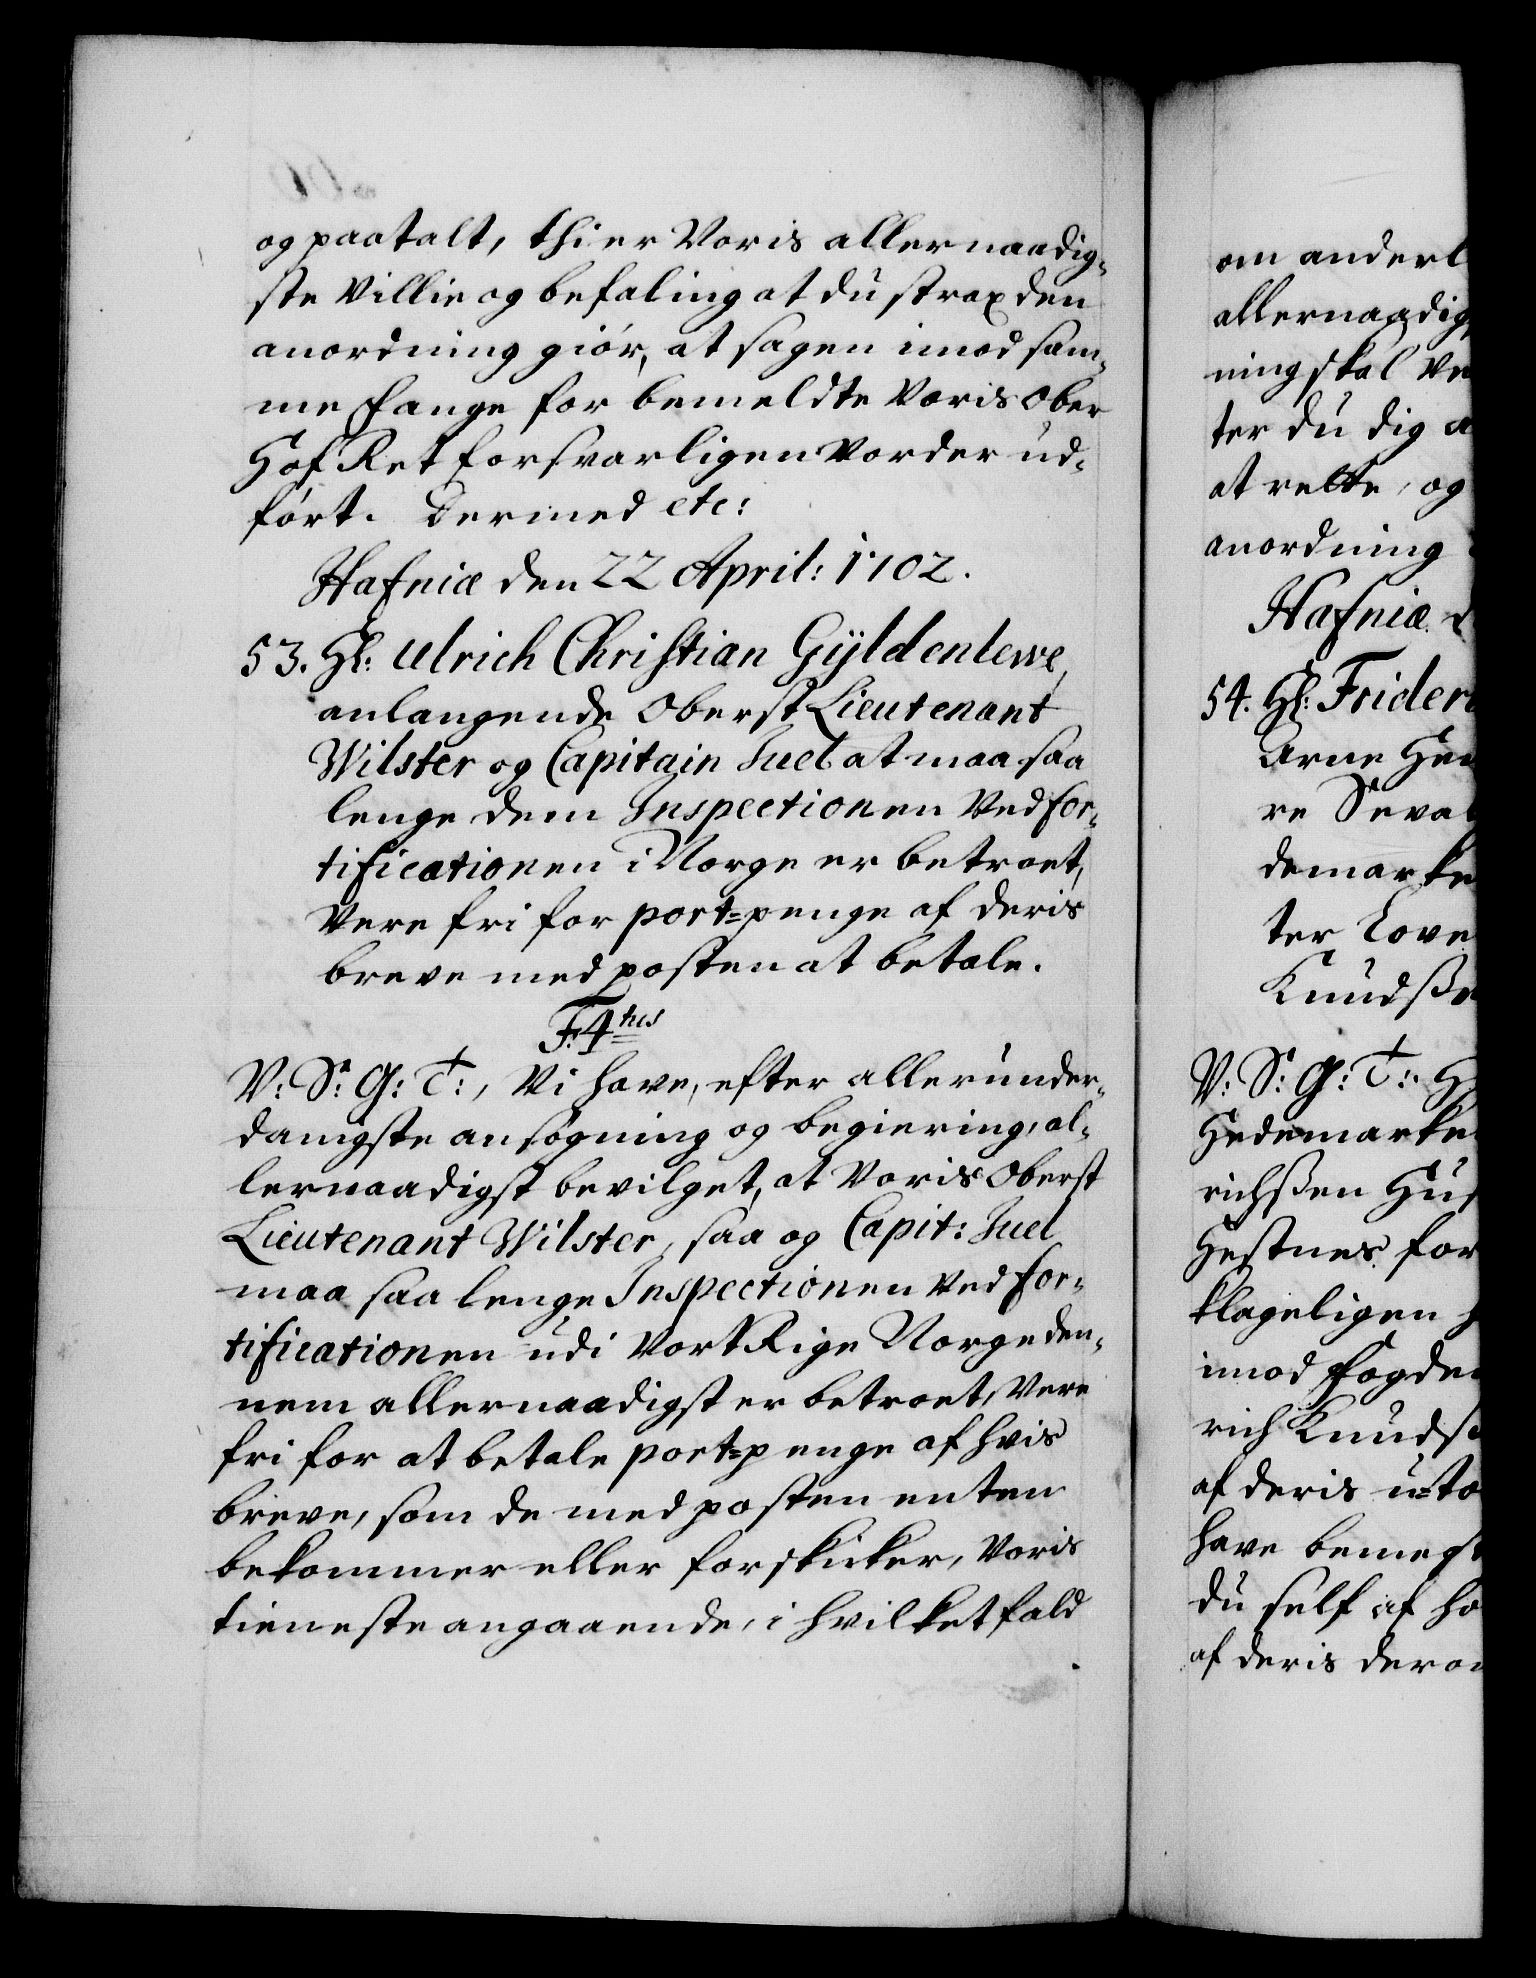 og paatalt, thi er Voris allernaadig-
ste Villie og befaling at du strax den
anordning giör, at sagen imod sam-
me fange for bemeldte Voris Ober
Hof Ret forsvarligen vorder ud-
fört. Dermed etc:
Hafniæ den 22 April: 1702.
53. Hl: Ulrich Christian Gÿldenlewe,
anlangende Oberst Lieutenant
Wilster og Capitain Juel at maa saa
lenge dem Inspectionen Ved for-
tificationen i Norge er betroet,
Vere fri for port=penge af deris
breve med posten at betale.
F.4tus
V: S: G: T:, Vi have, efter allerunder-
danigste ansögning og begiering, al-
lernaadigst bevilget, at Voris Oberst
Lieutenant Wilster, saa og Capit: Juel
maa saa lenge Inspectionen Ved for-
tificationen udi Vort Rige Norge den-
nem allernaadigst er betroet, Vere
fri for at betale port=penge af hvis
breve, som de med posten enten
bekommer eller forskicker, Voris
tieneste angaaende, i hvilket fald
om anderl
allernaadig
ning skal Ve
ter du dig a
at rette, og
anordning
Hafniæ d
54. Hl: Frider
Arne He
re Seval
demarke
ter Love
Knudsße
V: S: G: T:. H
Hedemarke
richßen Hus
Hestnes for
klageligen h
imod fogde
rich Knuds
af deris u=to
have bemegt
du self af ho
af deris dero